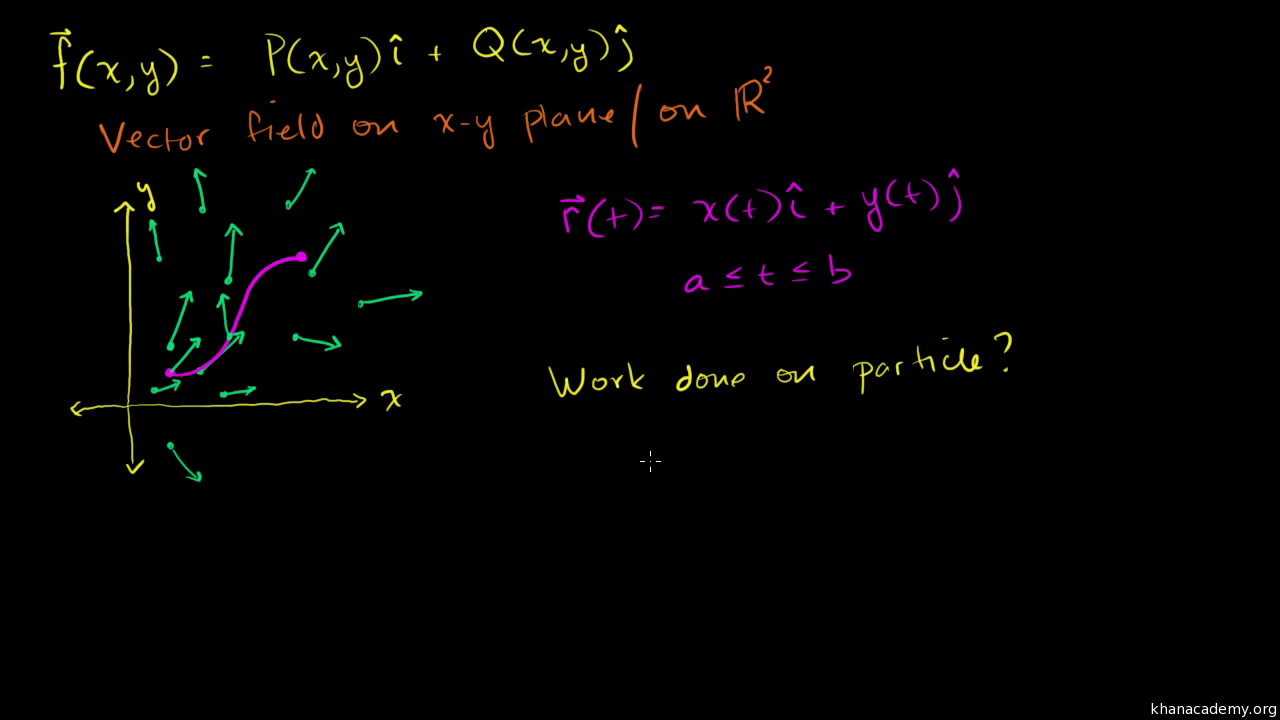 f⃗(x,y) = P(x,y)î + Q(x,y)ĵ
Vector field on x-y plane/on ℝ²
y
r⃗(t)= x(t)î + y(t)ĵ
a ≤ t ≤ b
Work done on particle?
x
khanacademy.org